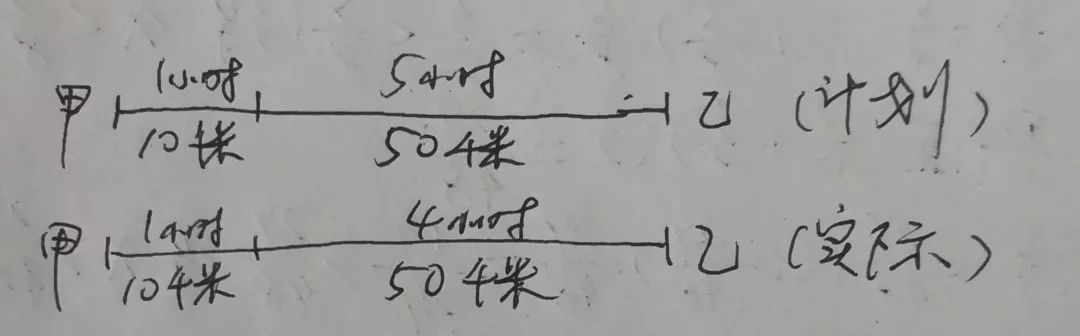 1小时 5小时
甲 乙 (计划)
10千米 50千米
1小时 4小时
甲 乙 (实际)
10千米 50千米